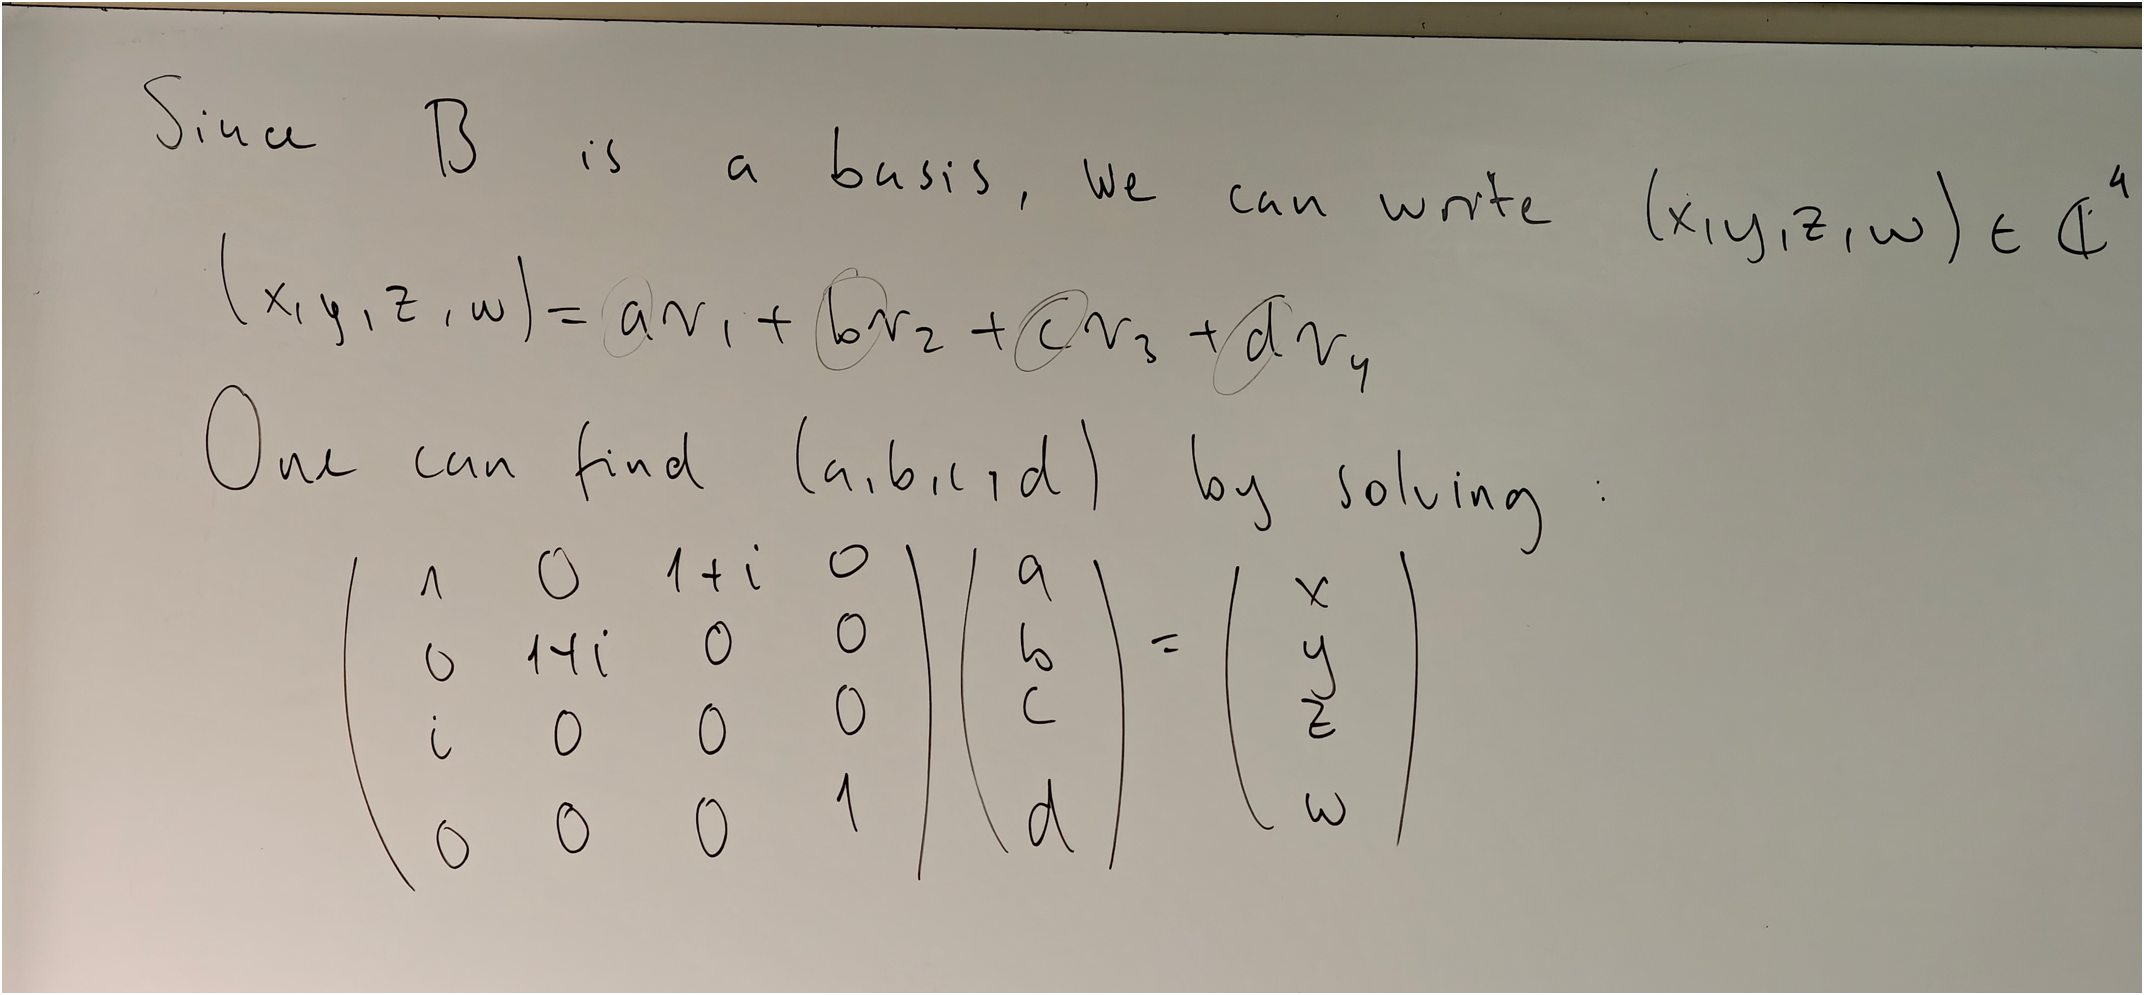 Since B is a basis, we can write (x,y,z,w) ∈ ℂ⁴
(x,y,z,w) = av₁ + bv₂ + cv₃ + dv₄
One can find (a,b,c,d) by solving :
( 1 0 1+i 0 ) ( a ) = ( x )
( 0 1+i 0 0 ) ( b ) ( y )
( i 0 0 0 ) ( c ) ( z )
( 0 0 0 1 ) ( d ) ( w )